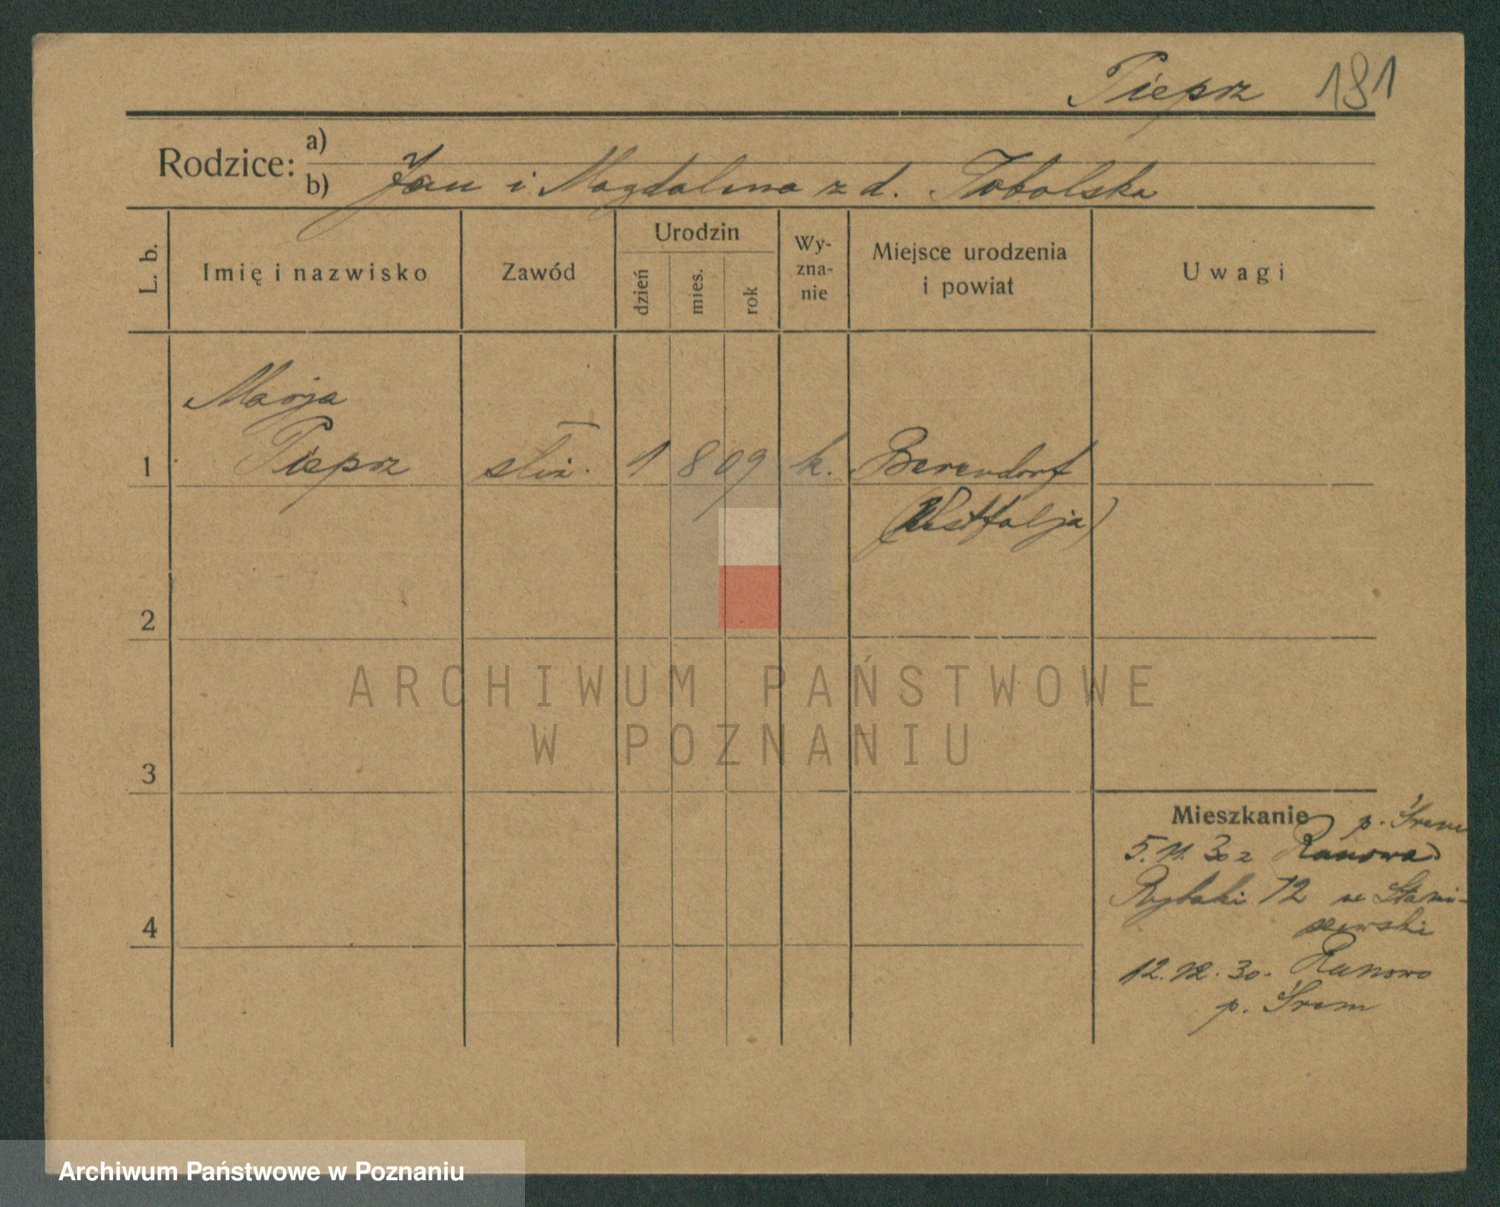 Pieprz 181
Rodzice:
a)
b) Jan i Magdalena z d. Tobolska
L. b.
Imię i nazwisko
Zawód
Urodzin
dzień
mies.
rok
Wy-
zna-
nie
Miejsce urodzenia
i powiat
Uwagi
Marja
1 Pieprz służ. 1 8 09 k. Berendorf
(Westfalja)
2
3
4
ARCHIWUM PAŃSTWOWE
W POZNANIU
Mieszkanie p. Śrem
5.11.30 z
Rybaki 12 u Stani-
szewski
12.12.30.
p. Śrem
Archiwum Państwowe w Poznaniu